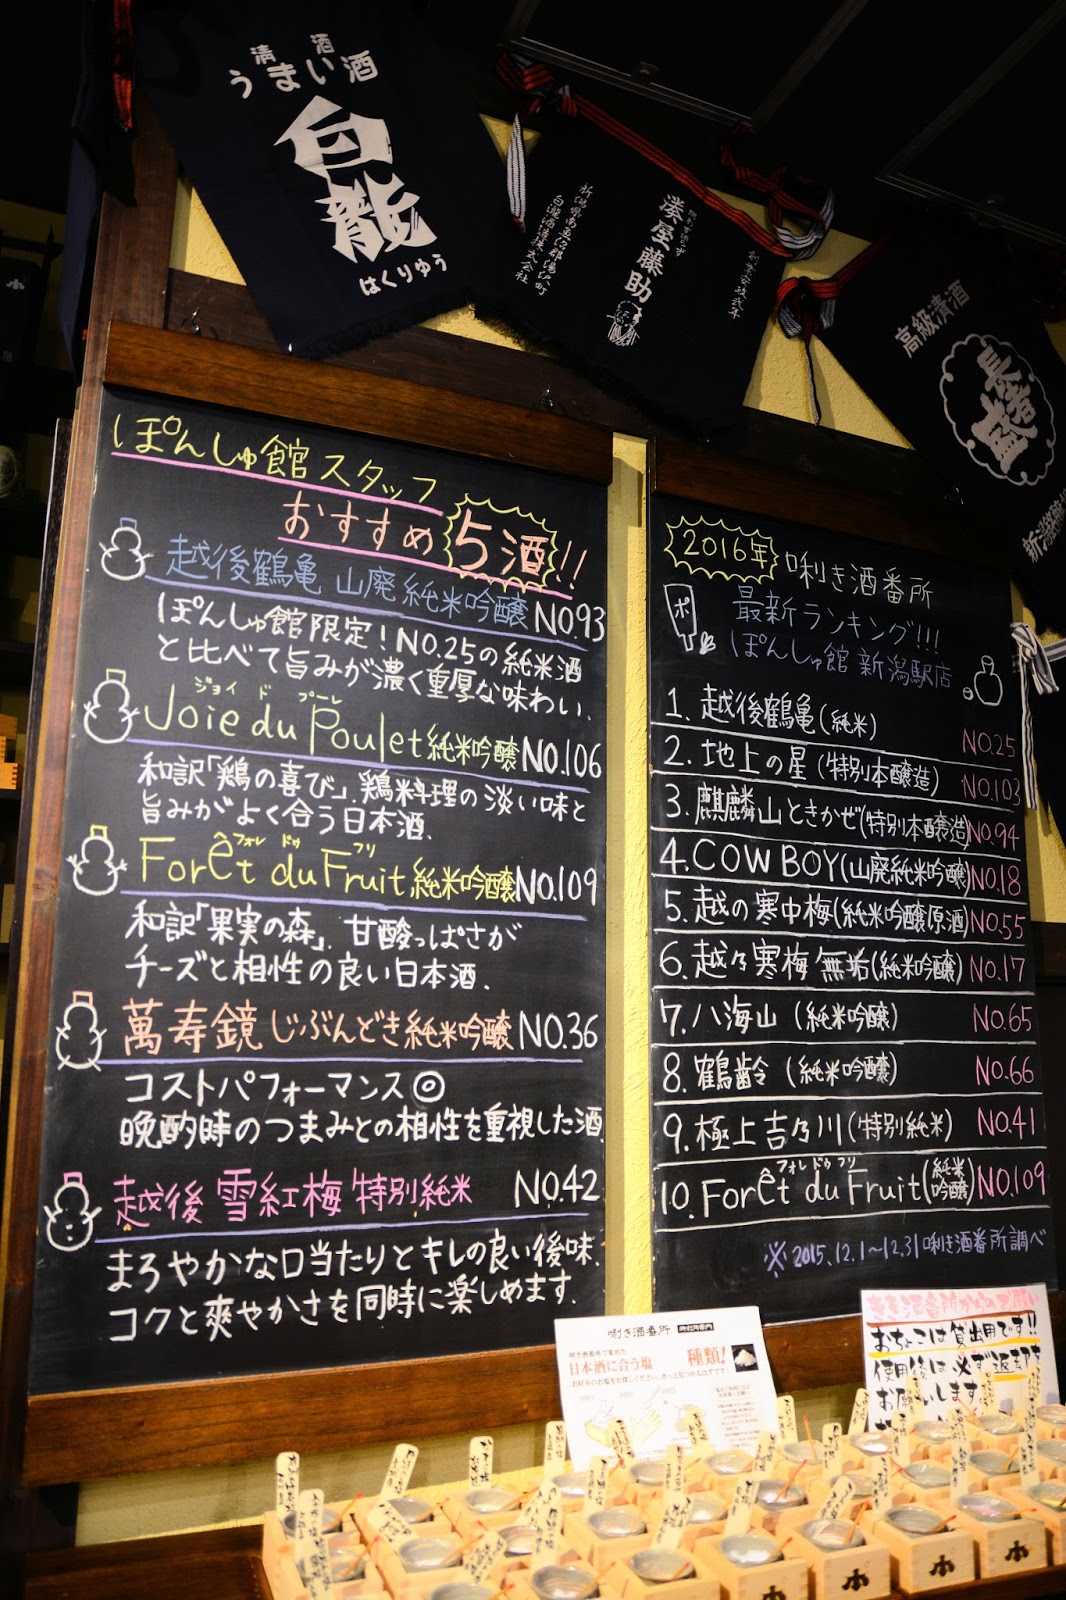 清酒
うまい酒
白龍
はくりゆう
創業安政弐年
湊屋藤助
新潟県南魚沼郡湯沢町
白瀧酒造株式会社
高級清酒
長者盛
ぽんしゅ館スタッフ
おすすめ5酒!!
越後鶴亀 山廃純米吟醸 NO.93
ぽんしゅ館限定!NO.25の純米酒
と比べて旨みが濃く重厚な味わい.
ジョイ ド プーレ
Joie du Poulet 純米吟醸 NO.106
和訳「鶏の喜び」鶏料理の淡い味と
旨みがよく合う日本酒.
フォレ ドゥ フリ
Forêt du Fruit 純米吟醸 NO.109
和訳「果実の森」.甘酸っぱさが
チーズと相性の良い日本酒.
萬寿鏡 じぶんどき純米吟醸 NO.36
コストパフォーマンス◎
晩酌時のつまみとの相性を重視した酒.
越後 雪紅梅 特別純米 NO.42
まろやかな口当たりとキレの良い後味.
コクと爽やかさを同時に楽しめます.
2016年 唎き酒番所
最新ランキング!!!
ぽんしゅ館 新潟駅店
ポ
1. 越後鶴亀(純米) NO.25
2. 地上の星(特別本醸造) NO.103
3. 麒麟山ときかぜ(特別本醸造) NO.94
4. COW BOY(山廃純米吟醸) NO.18
5. 越の寒中梅(純米吟醸原酒) NO.55
6. 越乃寒梅 無垢(純米吟醸) NO.17
7. 八海山(純米吟醸) NO.65
8. 鶴齢(純米吟醸) NO.66
9. 極上吉乃川(特別純米) NO.41
フォレ ドゥ フリ
10. Forêt du Fruit(純米吟醸) NO.109
※2015.12.1〜12.31唎き酒番所調べ
唎き酒番所
日本酒に合う塩 種類!
きき酒番所からのお願い
おちょこは貸出用です!!
使用後は必ず返却を
お願いします